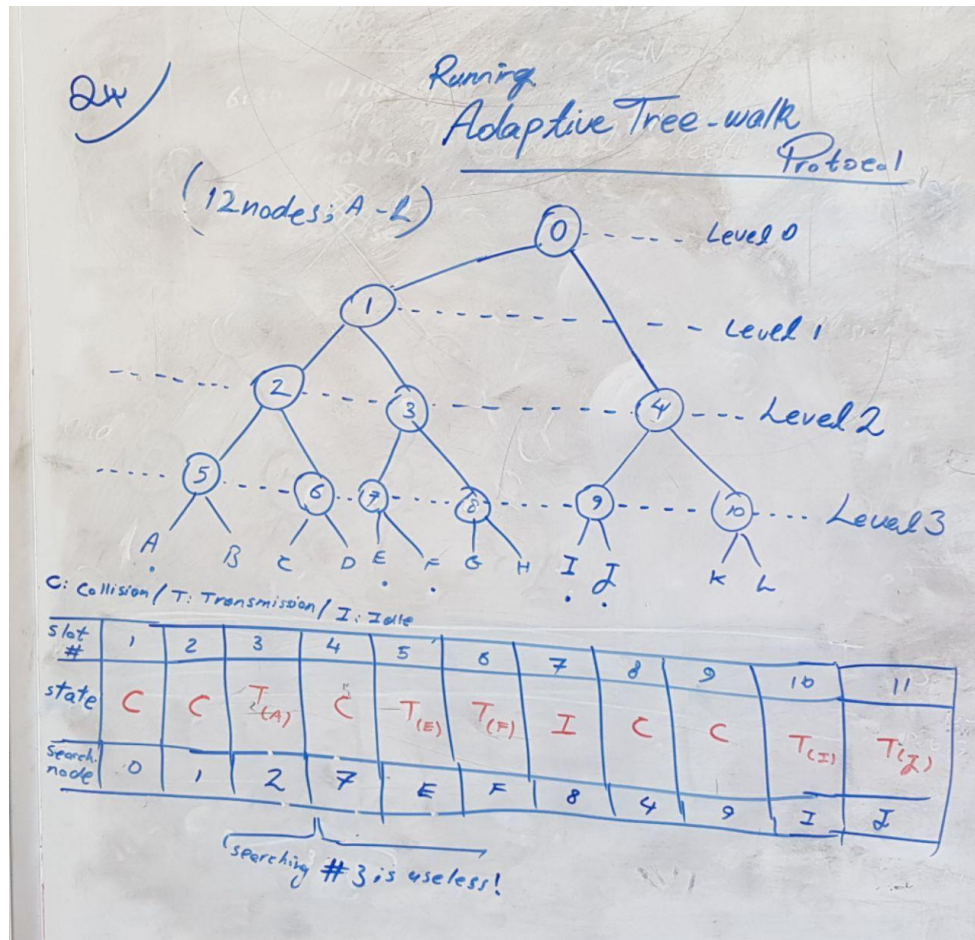 Q4)
Running
Adaptive Tree-walk
Protocol
(12 nodes; A-L)
0 Level 0
1 Level 1
2 3 4 Level 2
5 6 7 8 9 10 Level 3
A B C D E F G H I J K L
C: Collision / T: Transmission / I: Idle
slot # 1 2 3 4 5 6 7 8 9 10 11
state C C T(A) C T(E) T(F) I C C T(I) T(J)
search. node 0 1 2 7 E F 8 4 9 I J
searching #3 is useless!